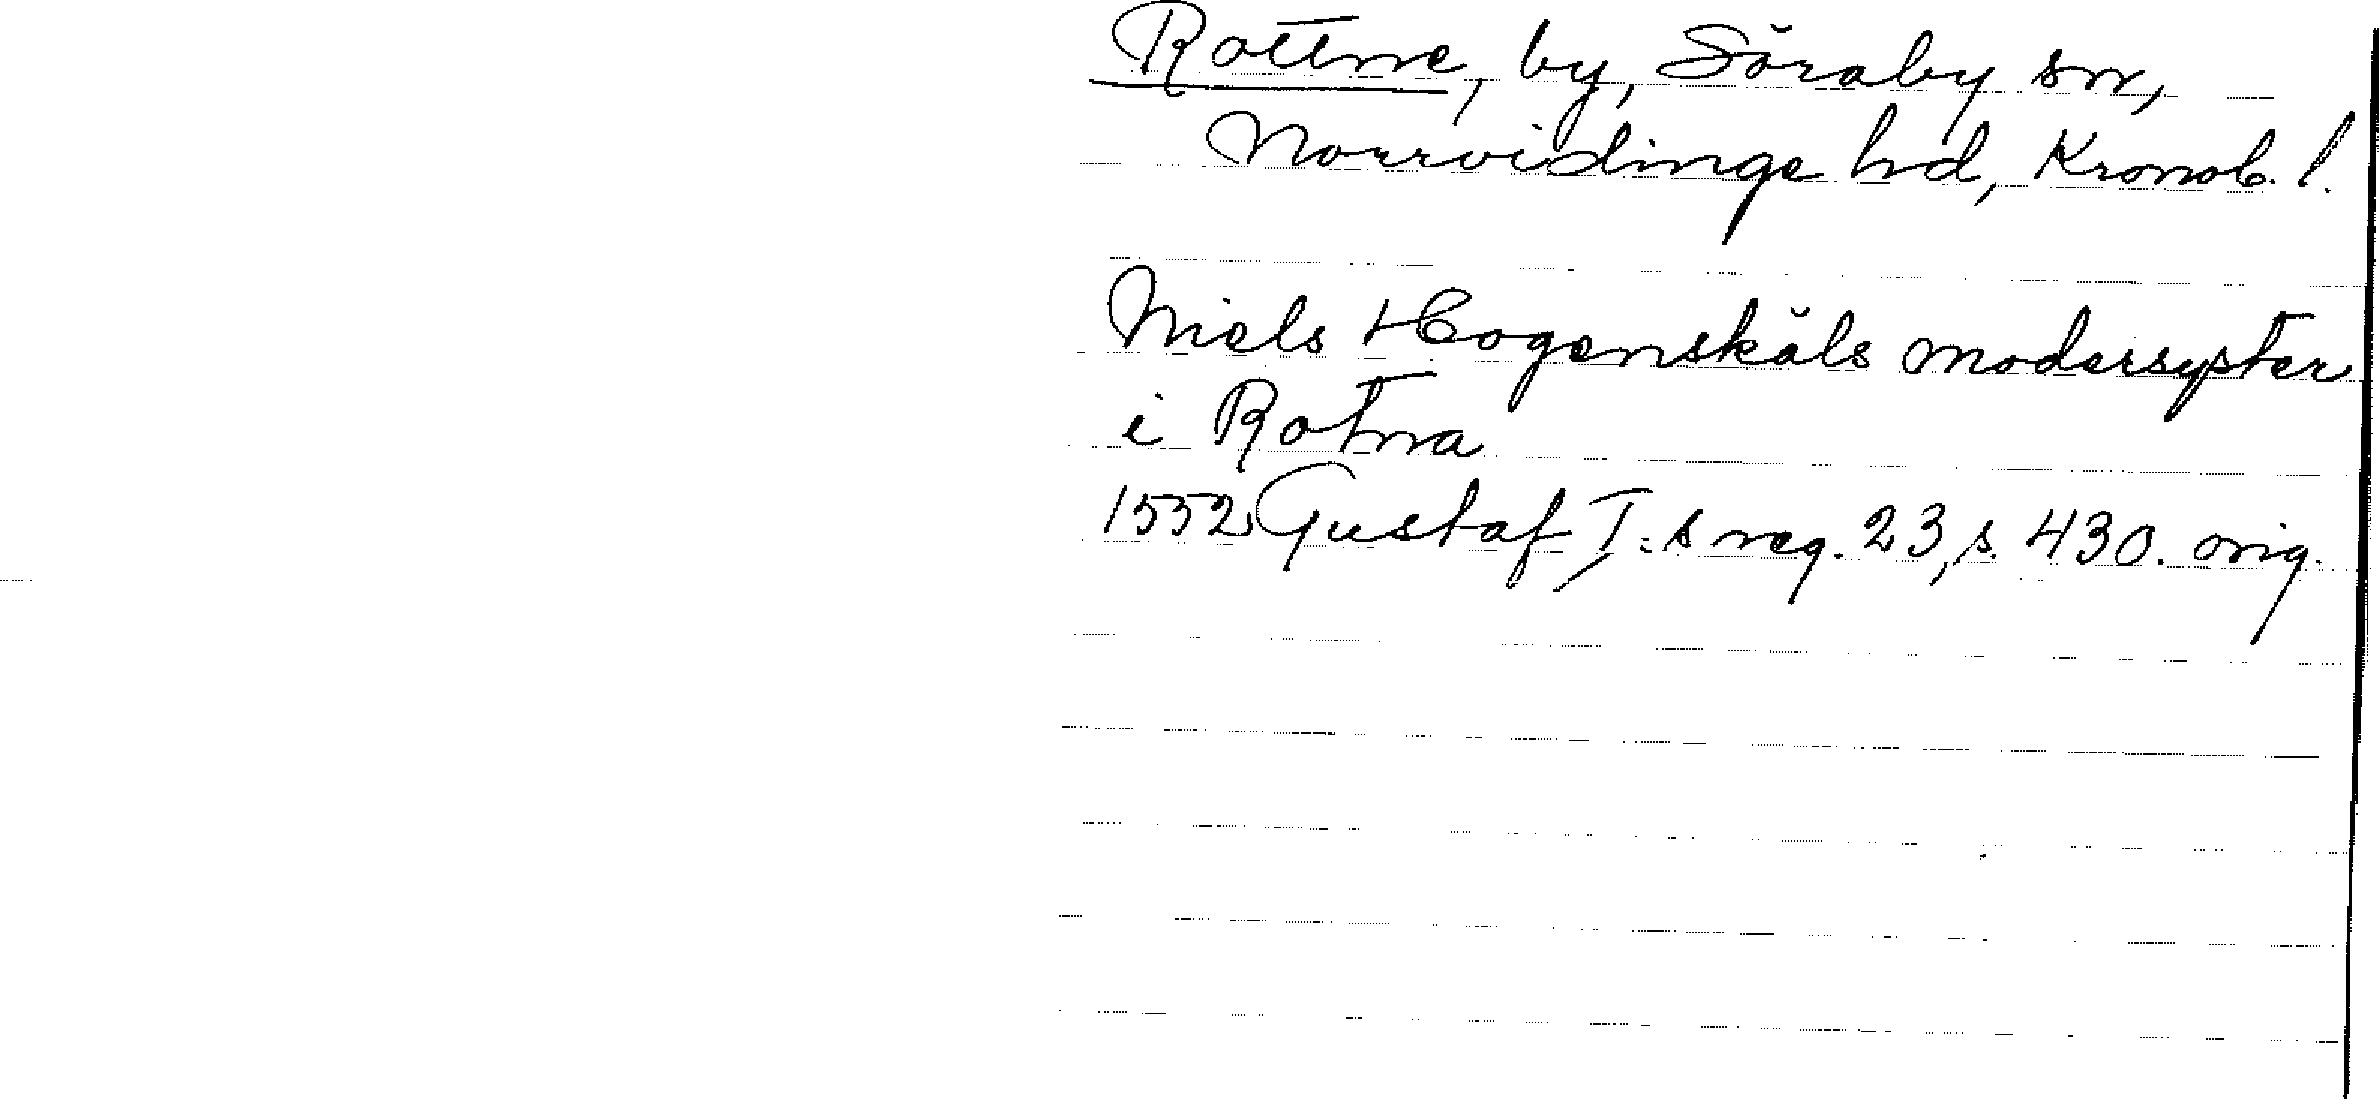 Rottne, by, Söraby sn,
Norrvidinge hd, Kronob. l.
Niels Hogenskåls modersyster
i Rotna
1552 Gustaf I:s reg. 23, s. 430. orig.